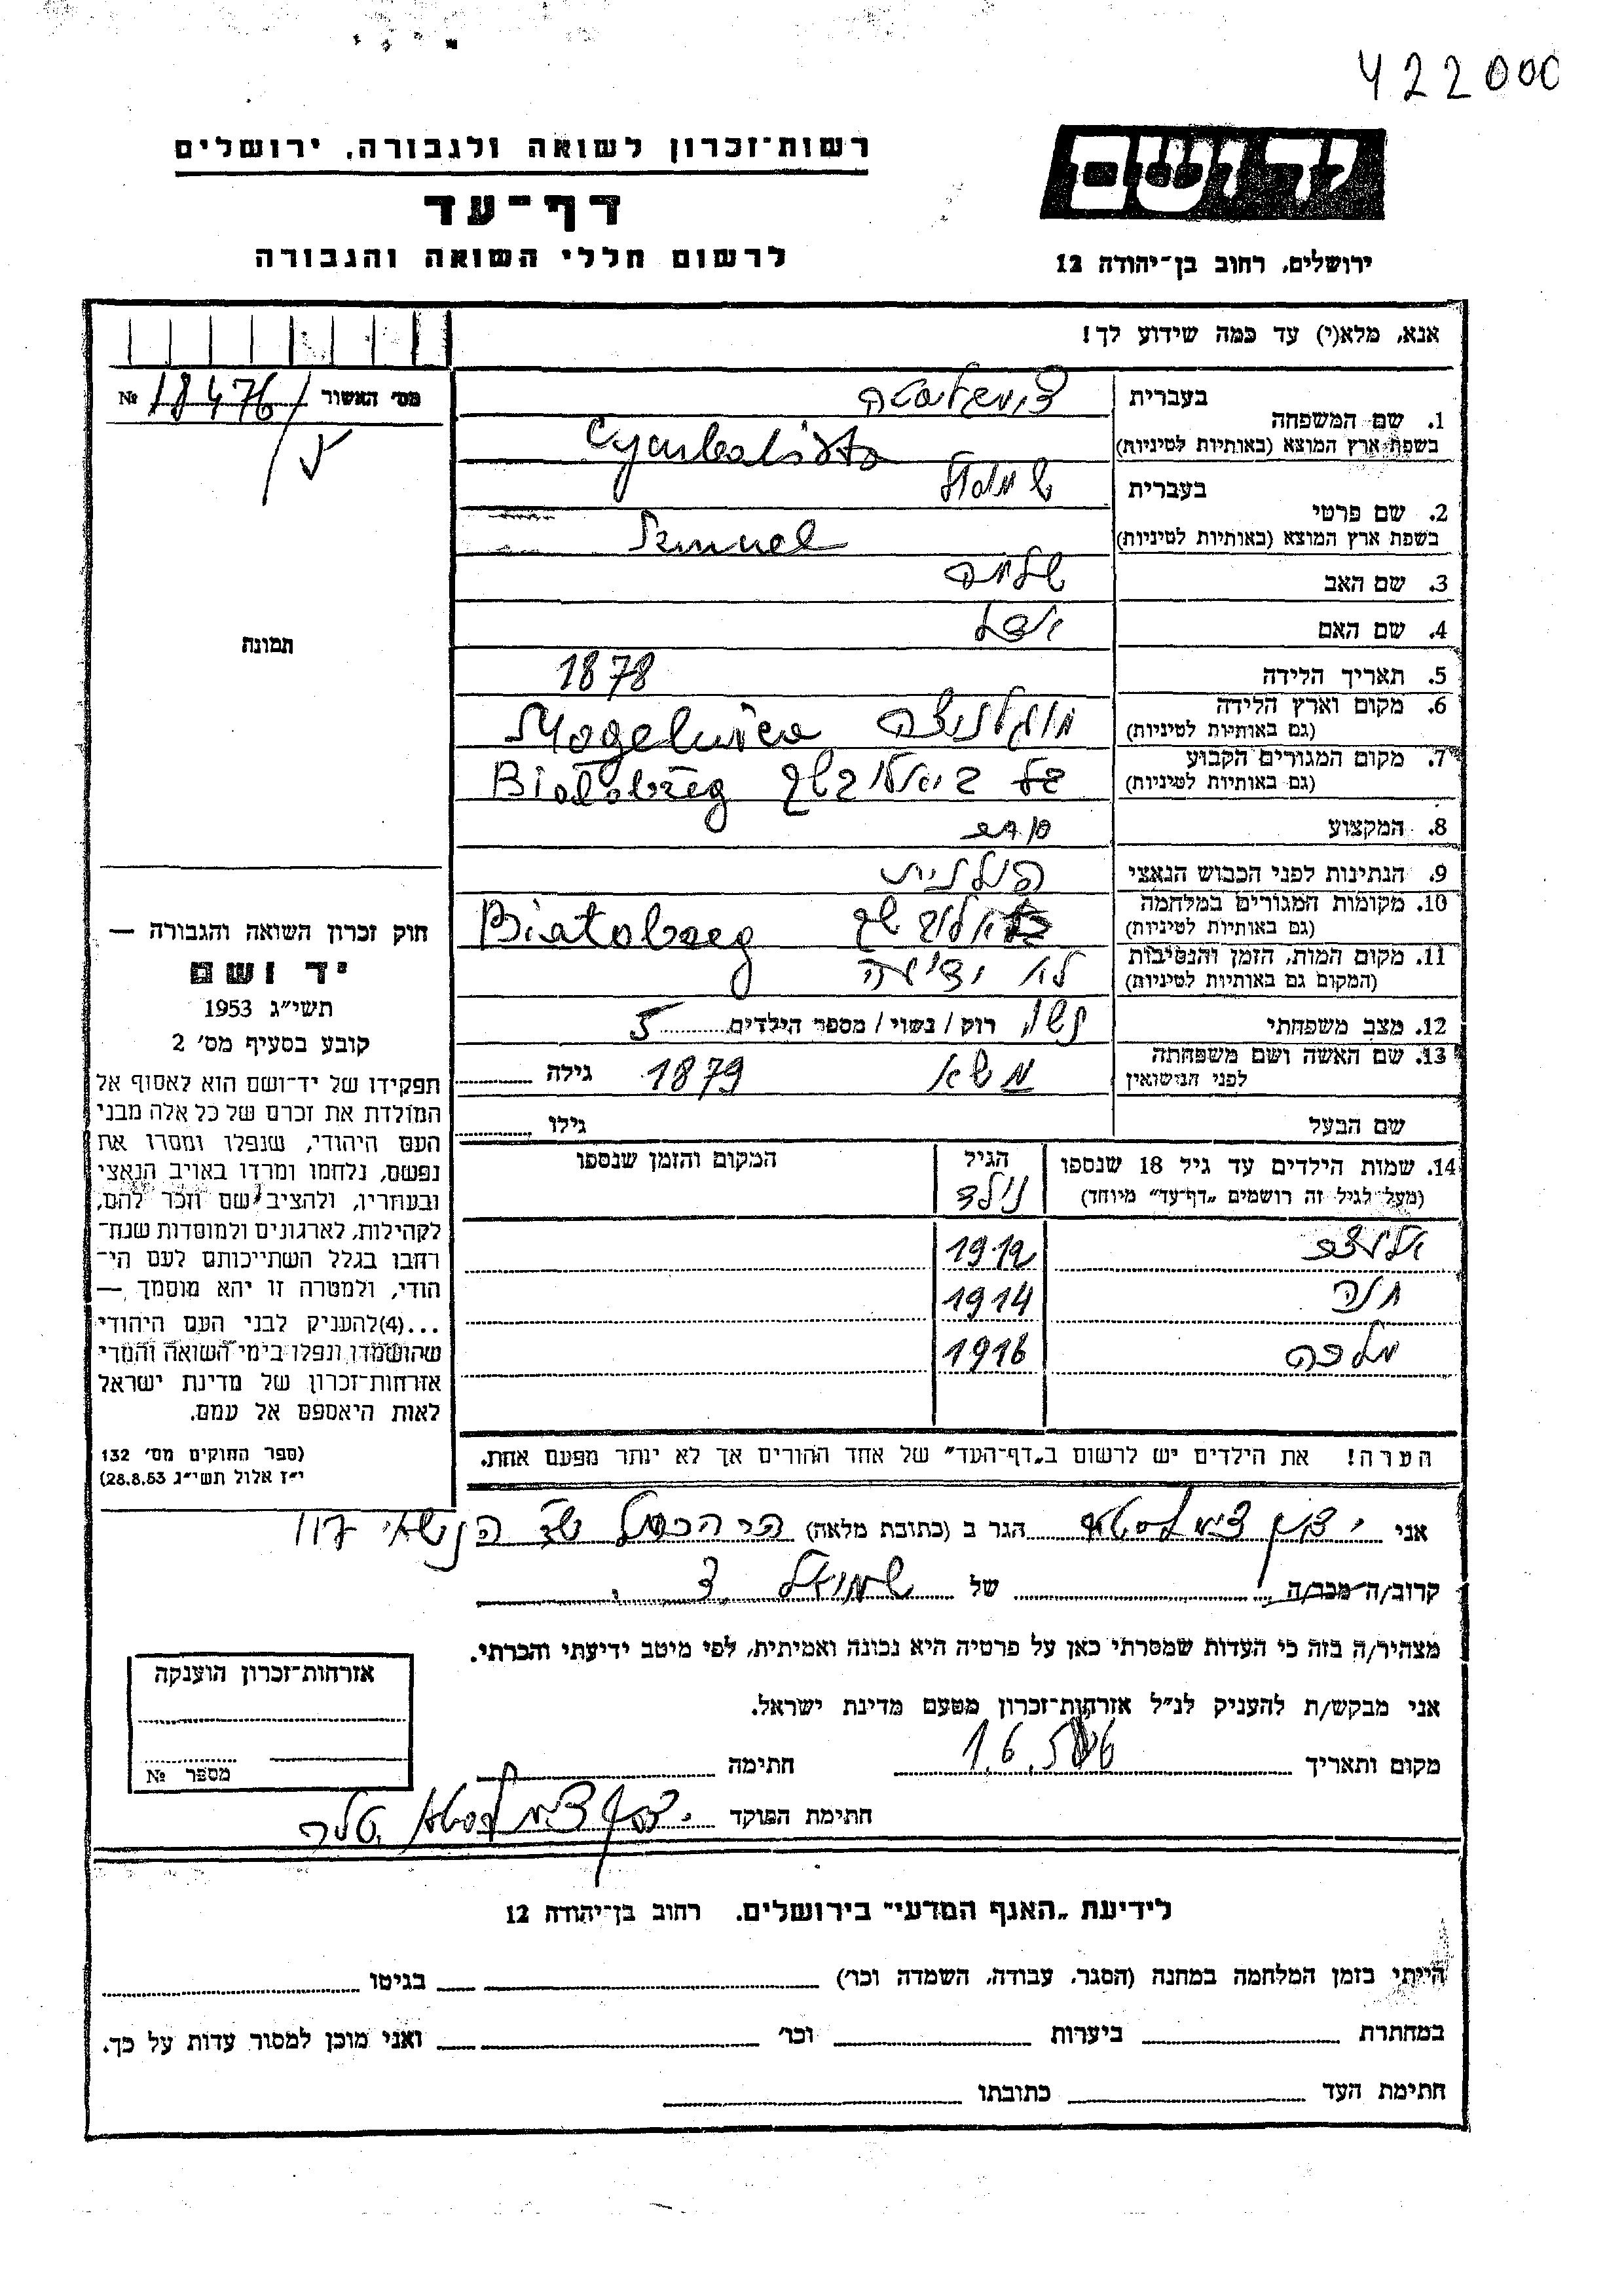 422000
רשות־זכרון לשואה ולגבורה, ירושלים
דף־עד
לרשום חללי השואה והגבורה
יד ושם
ירושלים, רחוב בן־יהודה 12
אנא, מלא(י) עד כמה שידוע לך!
מס׳ האשור 18476 №
1. שם המשפחה
בעברית
בשפת ארץ המוצא (באותיות לטיניות) Cymbalista
2. שם פרטי
בעברית שמואל
בשפת ארץ המוצא (באותיות לטיניות) Szmuel
3. שם האב שלמה
4. שם האם
5. תאריך הלידה 1878
6. מקום וארץ הלידה
(גם באותיות לטיניות) מוגלניצה
7. מקום המגורים הקבוע
(גם באותיות לטיניות) Białobrzeg
8. המקצוע סוחר
9. הנתינות לפני הכבוש הנאצי פולנית
10. מקומות המגורים במלחמה
(גם באותיות לטיניות) Białobrzeg
11. מקום המות, הזמן והנסיבות
(המקום גם באותיות לטיניות) לא ידוע
12. מצב משפחתי נשוי רווק / נשוי / מספר הילדים 5
13. שם האשה ושם משפחתה
לפני הנישואין גילה 1879
שם הבעל גילו
14. שמות הילדים עד גיל 18 שנספו
(מעל לגיל זה רושמים „דף־עד״ מיוחד)
הגיל
נולד
המקום והזמן שנספו
1912
חנה 1914
מלכה 1916
הערה! את הילדים יש לרשום ב„דף־העד״ של אחד ההורים אך לא יותר מפעם אחת.
תמונה
חוק זכרון השואה והגבורה —
יד ושם
תשי״ג 1953
קובע בסעיף מס׳ 2
תפקידו של יד־ושם הוא לאסוף אל
המולדת את זכרם של כל אלה מבני
העם היהודי, שנפלו ומסרו את
נפשם, נלחמו ומרדו באויב הנאצי
ובעוזריו, ולהציב שם וזכר להם,
לקהילות, לארגונים ולמוסדות שנח־
רבו בגלל השתייכותם לעם הי־
הודי, ולמטרה זו יהא מוסמך —
...(4)להעניק לבני העם היהודי
שהושמדו ונפלו בימי השואה והמרי
אזרחות־זכרון של מדינת ישראל
לאות היאספם אל עמם.
(ספר החוקים מס׳ 132
י״ז אלול תשי״ג 28.8.53)
אני הגר ב (כתובת מלאה)
קרוב/ה מכר/ה של שמואל צ.
מצהיר/ה בזה כי העדות שמסרתי כאן על פרטיה היא נכונה ואמיתית, לפי מיטב ידיעתי והכרתי.
אני מבקש/ת להעניק לנ״ל אזרחות־זכרון מטעם מדינת ישראל.
מקום ותאריך 1.6.56 חתימה
חתימת הפוקד
אזרחות־זכרון הוענקה
מספר №
לידיעת „האגף המדעי״ בירושלים. רחוב בן־יהודה 12
הייתי בזמן המלחמה במחנה (הסגר, עבודה, השמדה וכו׳) בגיטו
במחתרת ביערות וכו׳ ואני מוכן למסור עדות על כך.
חתימת העד כתובתו